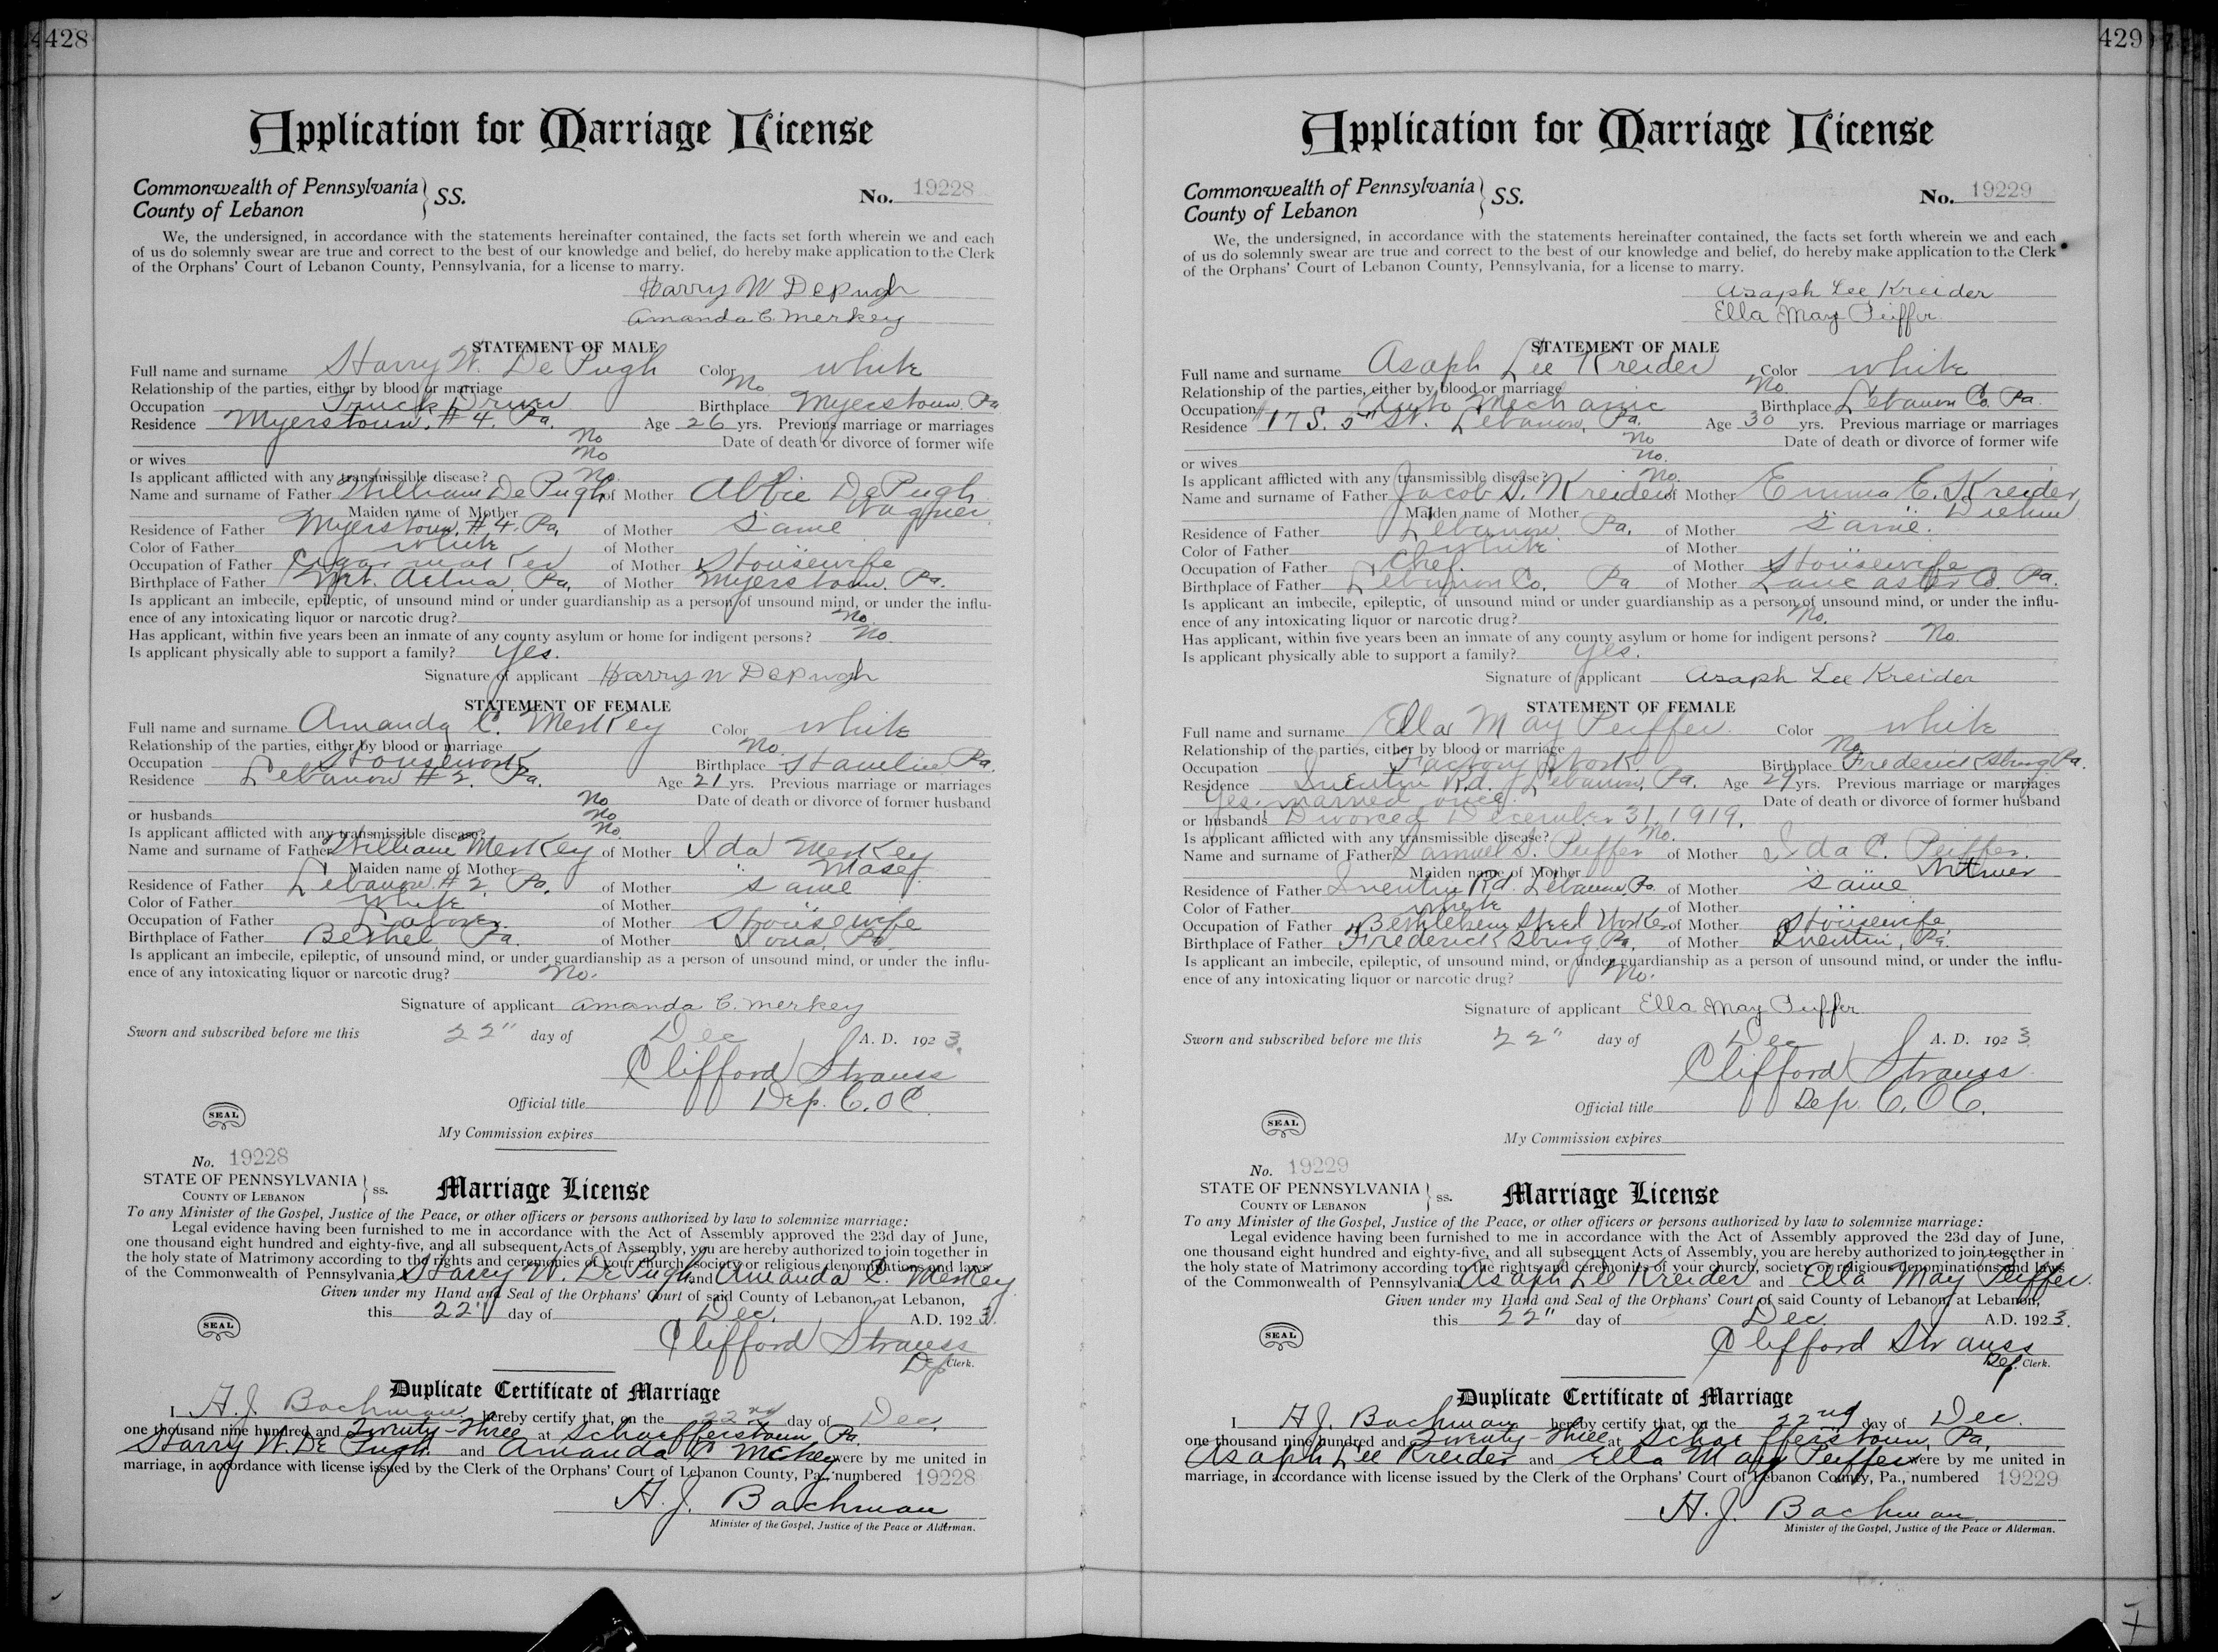 428
Application for Marriage License
Commonwealth of Pennsylvania } SS.
County of Lebanon
No. 19228
We, the undersigned, in accordance with the statements hereinafter contained, the facts set forth wherein we and each
of us do solemnly swear are true and correct to the best of our knowledge and belief, do hereby make application to the Clerk
of the Orphans' Court of Lebanon County, Pennsylvania, for a license to marry.
Harry W DePugh
Amanda C. Merkey
STATEMENT OF MALE
Full name and surname Harry W. De Pugh Color white
Relationship of the parties, either by blood or marriage No
Occupation Truck Driver Birthplace Myerstown, Pa
Residence Myerstown, #4, Pa. Age 26 yrs. Previous marriage or marriages
No Date of death or divorce of former wife
or wives No
Is applicant afflicted with any transmissible disease? No.
Name and surname of Father William DePugh of Mother Abbie DePugh
Maiden name of Mother Wagner
Residence of Father Myerstown, #4, Pa. of Mother " same "
Color of Father white of Mother "
Occupation of Father Cigar maker of Mother Housewife
Birthplace of Father Mt. Aetna, Pa. of Mother Myerstown, Pa.
Is applicant an imbecile, epileptic, of unsound mind or under guardianship as a person of unsound mind, or under the influ-
ence of any intoxicating liquor or narcotic drug? No.
Has applicant, within five years been an inmate of any county asylum or home for indigent persons? No
Is applicant physically able to support a family? Yes.
Signature of applicant Harry W DePugh
STATEMENT OF FEMALE
Full name and surname Amanda C. Merkey Color white
Relationship of the parties, either by blood or marriage No.
Occupation Housework Birthplace Hamlin Pa.
Residence Lebanon #2, Pa. Age 21 yrs. Previous marriage or marriages
No Date of death or divorce of former husband
or husbands No
Is applicant afflicted with any transmissible disease? No.
Name and surname of Father William Merkey of Mother Ida Merkey
Maiden name of Mother Mosey
Residence of Father Lebanon #2, Pa. of Mother " same "
Color of Father white of Mother "
Occupation of Father Laborer of Mother Housewife
Birthplace of Father Bethel, Pa. of Mother Iona, Pa
Is applicant an imbecile, epileptic, of unsound mind, or under guardianship as a person of unsound mind, or under the influ-
ence of any intoxicating liquor or narcotic drug? No.
Signature of applicant Amanda C. Merkey
Sworn and subscribed before me this 22" day of Dec A. D. 1923.
Clifford Strauss
Official title Dep. C. O C.
SEAL
My Commission expires
No. 19228
STATE OF PENNSYLVANIA } ss.
COUNTY OF LEBANON
Marriage License
To any Minister of the Gospel, Justice of the Peace, or other officers or persons authorized by law to solemnize marriage:
Legal evidence having been furnished to me in accordance with the Act of Assembly approved the 23d day of June,
one thousand eight hundred and eighty-five, and all subsequent Acts of Assembly, you are hereby authorized to join together in
the holy state of Matrimony according to the rights and ceremonies of your church, society or religious denominations and laws
of the Commonwealth of Pennsylvania Harry W. De Pugh and Amanda C. Merkey
Given under my Hand and Seal of the Orphans' Court of said County of Lebanon, at Lebanon,
this 22" day of Dec. A.D. 1923.
SEAL
Clifford Strauss
Dep Clerk.
Duplicate Certificate of Marriage
I A. J. Bachman hereby certify that, on the 22nd day of Dec.
one thousand nine hundred and Twenty-Three at Schaefferstown, Pa.
Harry W. De Pugh and Amanda C Merkey were by me united in
marriage, in accordance with license issued by the Clerk of the Orphans' Court of Lebanon County, Pa., numbered 19228
A. J. Bachman
Minister of the Gospel, Justice of the Peace or Alderman.
429
Application for Marriage License
Commonwealth of Pennsylvania } SS.
County of Lebanon
No. 19229
We, the undersigned, in accordance with the statements hereinafter contained, the facts set forth wherein we and each
of us do solemnly swear are true and correct to the best of our knowledge and belief, do hereby make application to the Clerk
of the Orphans' Court of Lebanon County, Pennsylvania, for a license to marry.
Asaph Lee Kreider
Ella May Peiffer
STATEMENT OF MALE
Full name and surname Asaph Lee Kreider Color white
Relationship of the parties, either by blood or marriage No.
Occupation Auto Mechanic Birthplace Lebanon Co. Pa.
Residence #17 S. 5th St. Lebanon, Pa. Age 30 yrs. Previous marriage or marriages
No Date of death or divorce of former wife
or wives No.
Is applicant afflicted with any transmissible disease? No.
Name and surname of Father Jacob S. Kreider of Mother Emma E. Kreider
Maiden name of Mother Diehm
Residence of Father Lebanon, Pa. of Mother " same "
Color of Father white of Mother "
Occupation of Father Chef. of Mother Housewife
Birthplace of Father Lebanon Co. Pa of Mother Lancaster Co. Pa.
Is applicant an imbecile, epileptic, of unsound mind or under guardianship as a person of unsound mind, or under the influ-
ence of any intoxicating liquor or narcotic drug? No.
Has applicant, within five years been an inmate of any county asylum or home for indigent persons? No.
Is applicant physically able to support a family? Yes.
Signature of applicant Asaph Lee Kreider
STATEMENT OF FEMALE
Full name and surname Ella May Peiffer Color white
Relationship of the parties, either by blood or marriage No
Occupation Factory Work Birthplace Fredericksburg Pa.
Residence Quentin Rd. Lebanon, Pa. Age 29 yrs. Previous marriage or marriages
Yes, married once. Date of death or divorce of former husband
or husbands Divorced December 31, 1919.
Is applicant afflicted with any transmissible disease? No.
Name and surname of Father Samuel S. Peiffer of Mother Ida C. Peiffer.
Maiden name of Mother Witmer
Residence of Father Quentin Rd. Lebanon Pa. of Mother " same "
Color of Father white of Mother "
Occupation of Father Bethlehem Steel Worker of Mother Housewife
Birthplace of Father Fredericksburg Pa. of Mother Quentin, Pa.
Is applicant an imbecile, epileptic, of unsound mind, or under guardianship as a person of unsound mind, or under the influ-
ence of any intoxicating liquor or narcotic drug? No.
Signature of applicant Ella May Peiffer
Sworn and subscribed before me this 22" day of Dec A. D. 1923.
Clifford Strauss
Official title Dep. C. O C.
SEAL
My Commission expires
No. 19229
STATE OF PENNSYLVANIA } ss.
COUNTY OF LEBANON
Marriage License
To any Minister of the Gospel, Justice of the Peace, or other officers or persons authorized by law to solemnize marriage:
Legal evidence having been furnished to me in accordance with the Act of Assembly approved the 23d day of June,
one thousand eight hundred and eighty-five, and all subsequent Acts of Assembly, you are hereby authorized to join together in
the holy state of Matrimony according to the rights and ceremonies of your church, society or religious denominations and laws
of the Commonwealth of Pennsylvania Asaph Lee Kreider and Ella May Peiffer.
Given under my Hand and Seal of the Orphans' Court of said County of Lebanon, at Lebanon,
this 22" day of Dec. A.D. 1923.
SEAL
Clifford Strauss
Dep. Clerk.
Duplicate Certificate of Marriage
I A. J. Bachman hereby certify that, on the 22nd day of Dec.
one thousand nine hundred and Twenty-Three at Schaefferstown, Pa.
Asaph Lee Kreider and Ella May Peiffer were by me united in
marriage, in accordance with license issued by the Clerk of the Orphans' Court of Lebanon County, Pa., numbered 19229
A. J. Bachman
Minister of the Gospel, Justice of the Peace or Alderman.